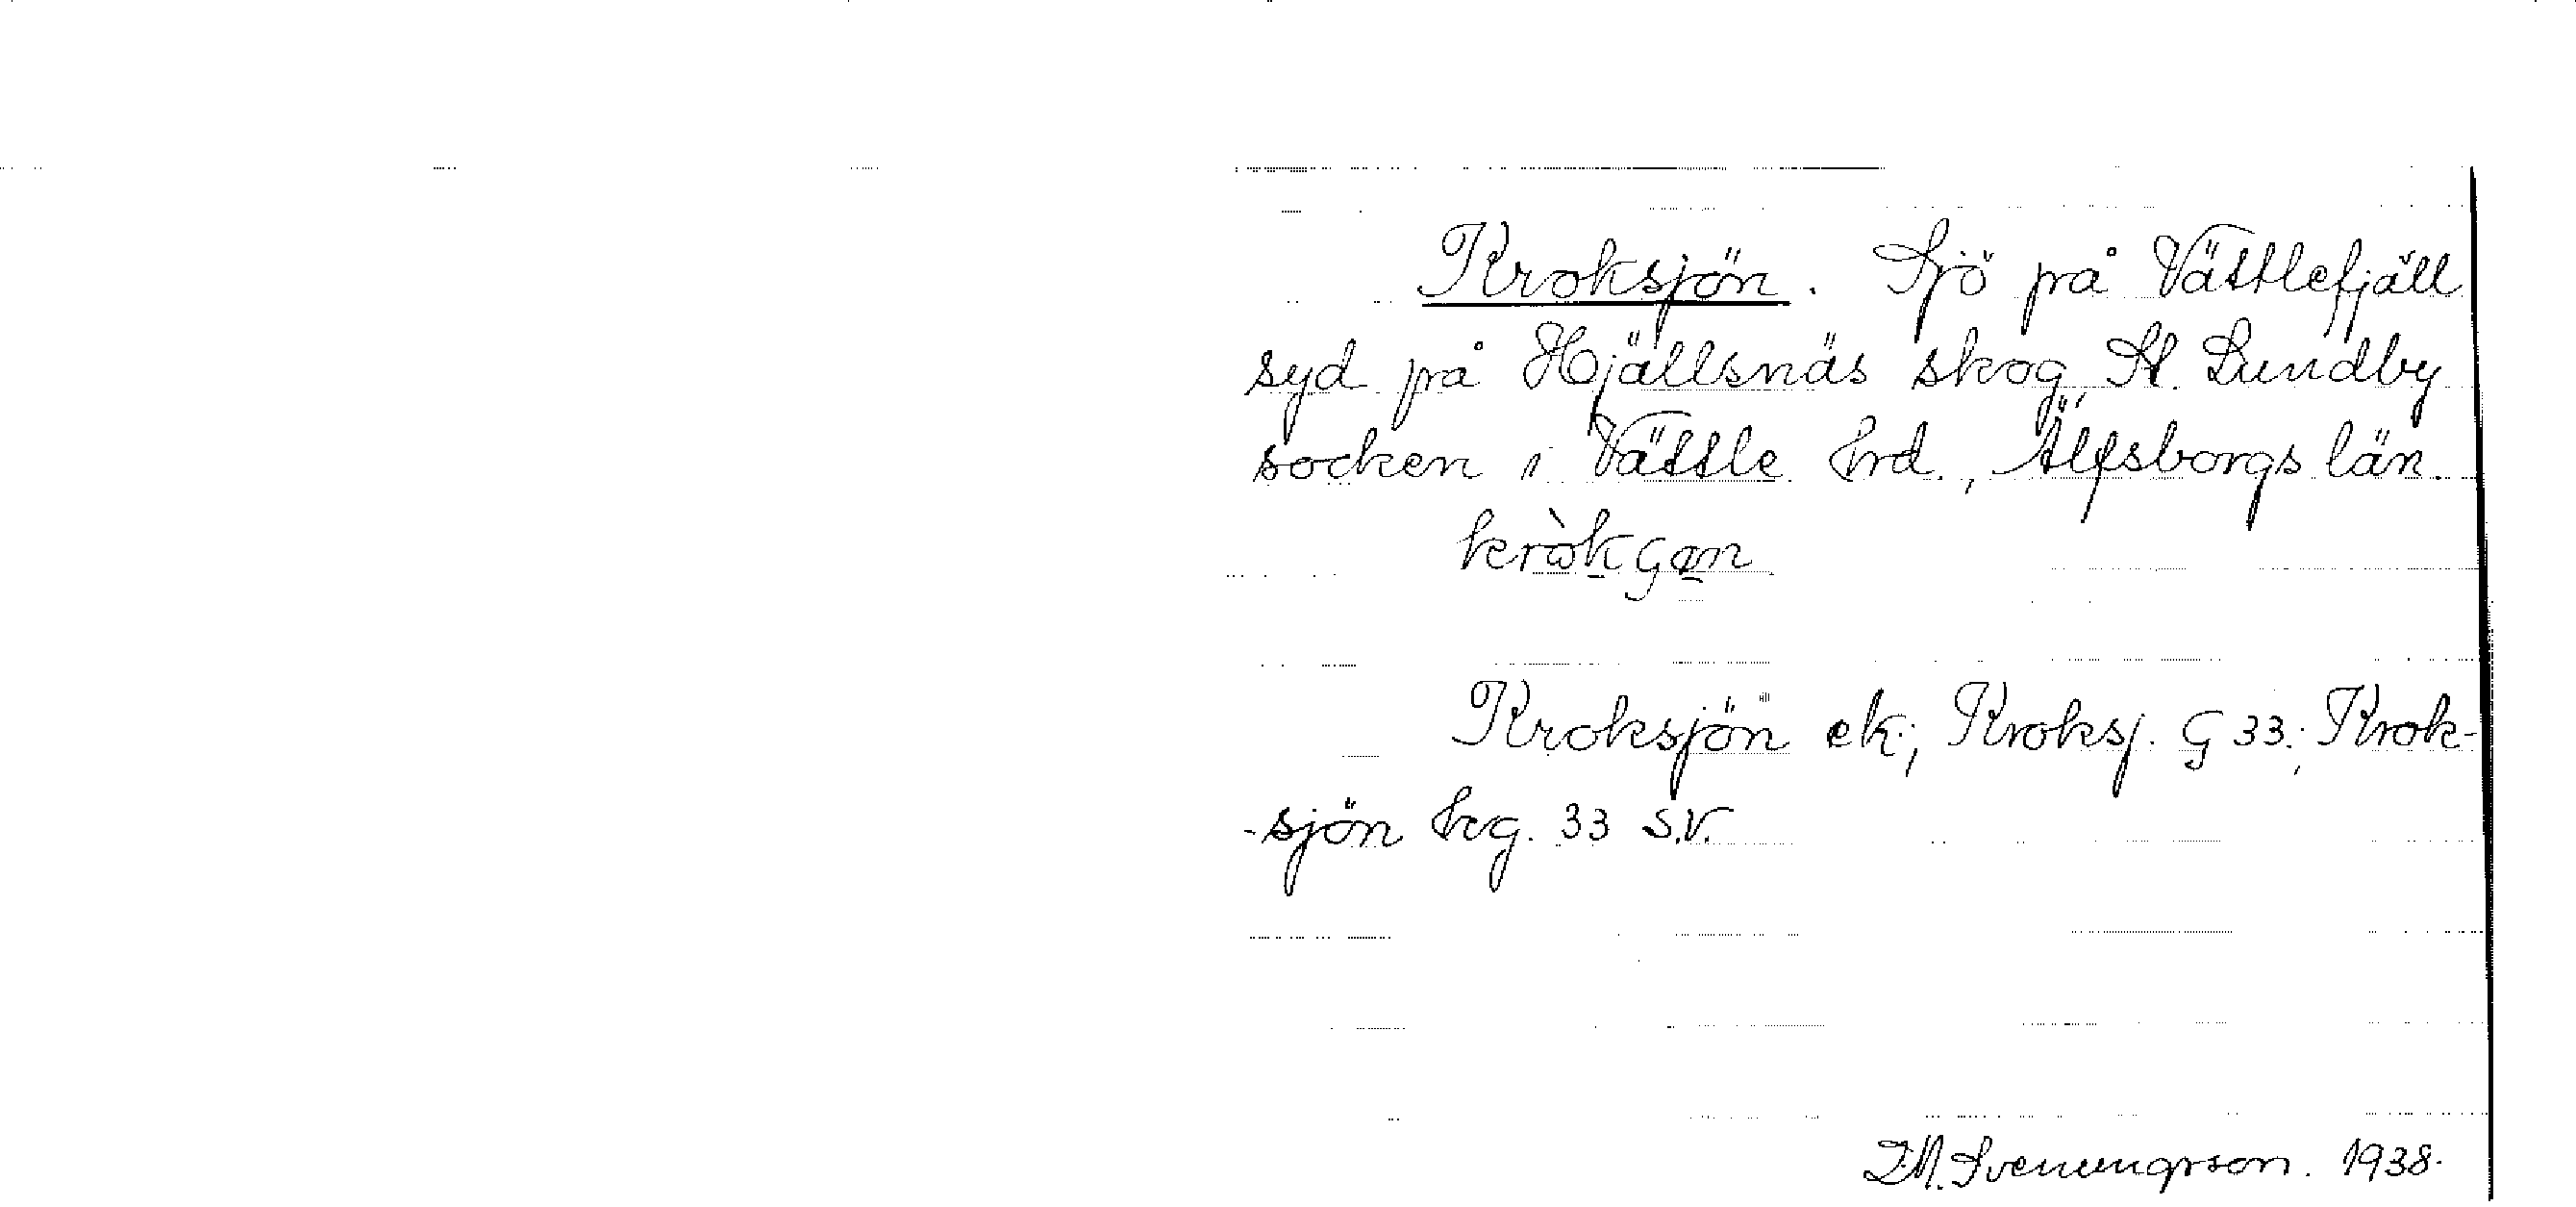 Kroksjön. Sjö på Vättlefjäll
syd på Hjällsnäs skog, St. Lundby
socken i Vättle hrd., Älfsborgs län.
kròkçøn
Kroksjön ek; Kroksj. G 33; Krok-
-sjön hrg. 33 S.V.
Svenungsson. 1938.